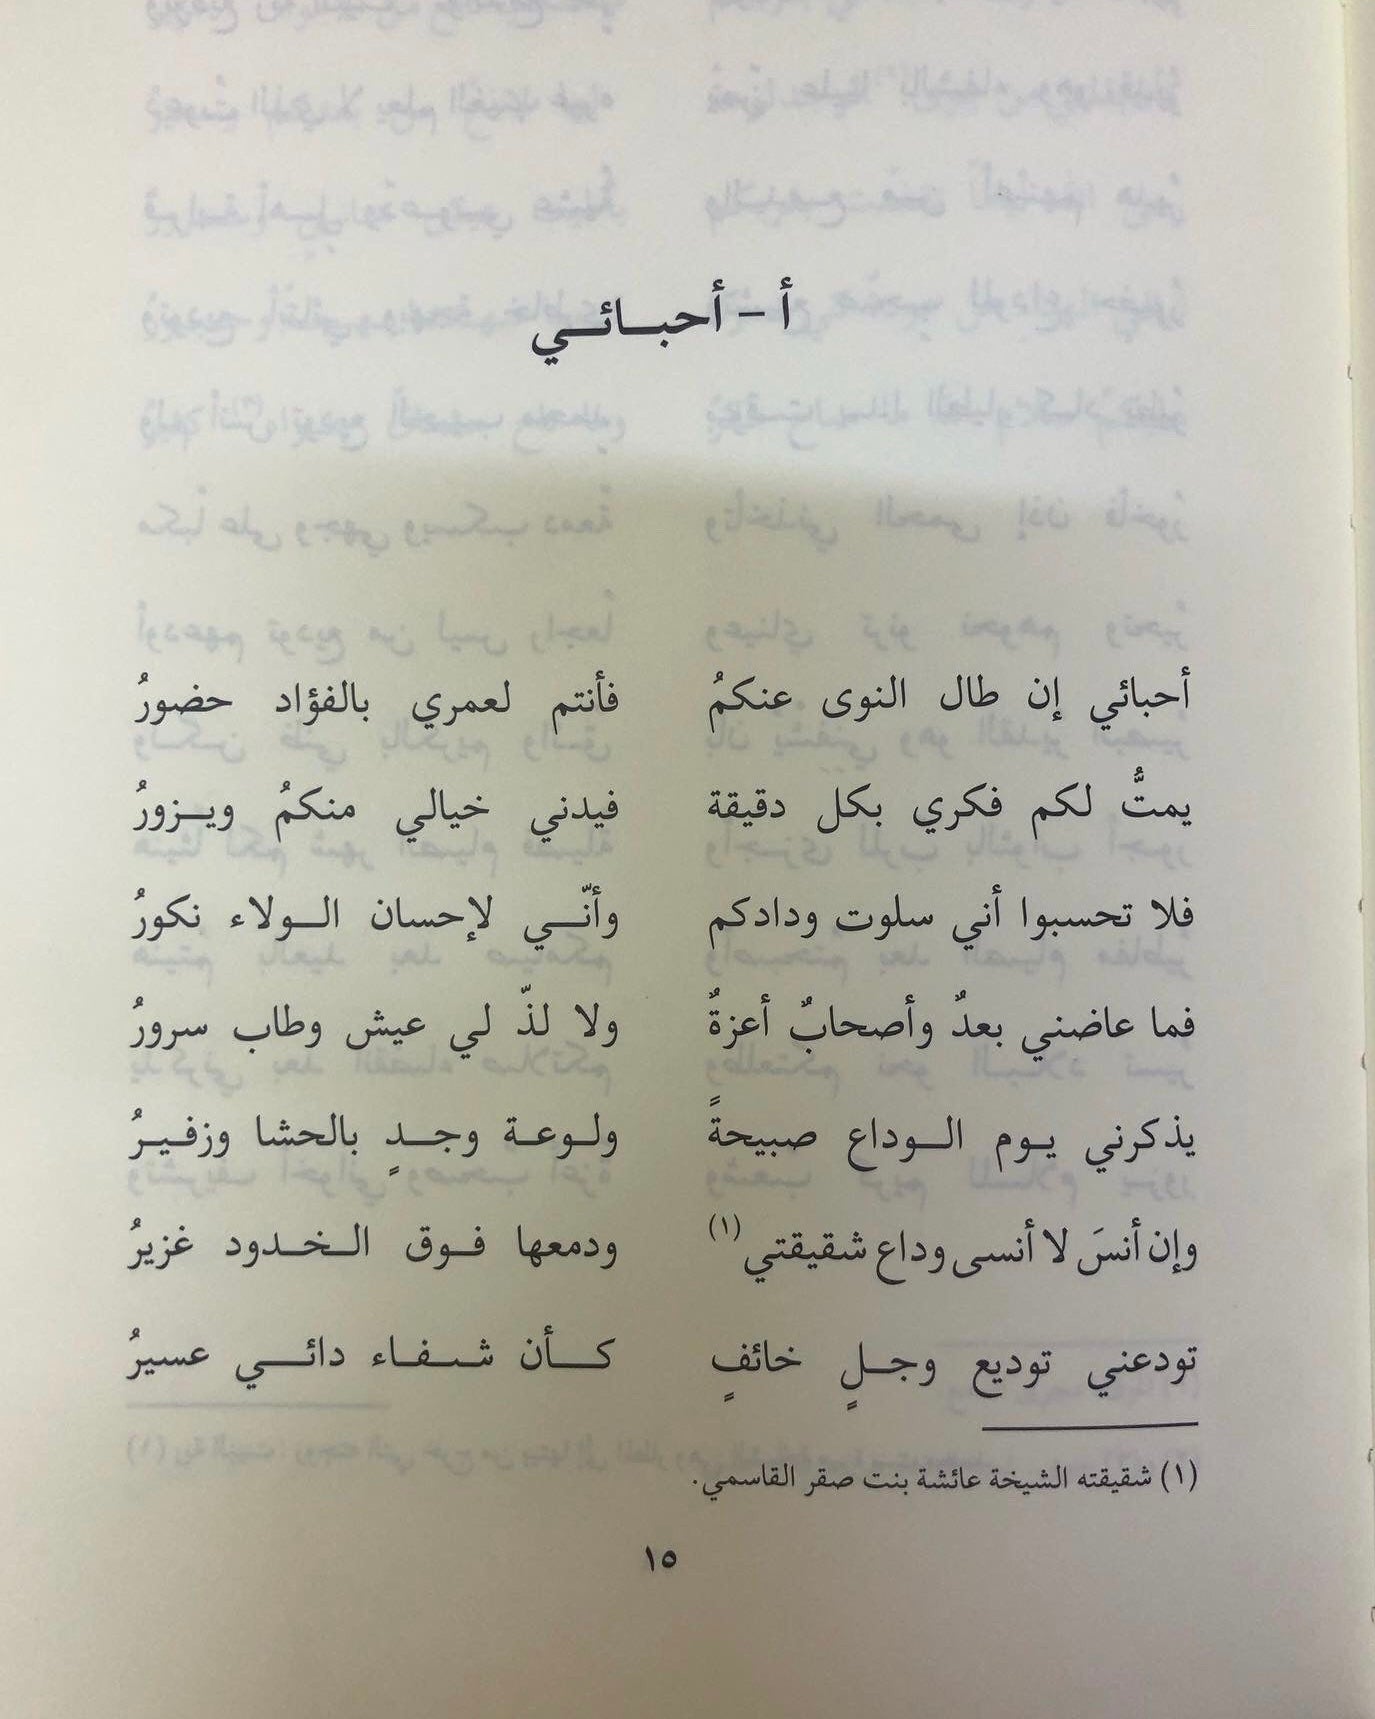 أ – أحبائي
أحبائي إن طال النوى عنكمُ فأنتم لعمري بالفؤاد حضورُ
يمتُّ لكم فكري بكل دقيقة فيدني خيالي منكمُ ويزورُ
فلا تحسبوا أني سلوت ودادكم وأنّي لإحسان الولاء نكورُ
فما عاضني بعدٌ وأصحابٌ أعزةٌ ولا لذّ لي عيش وطاب سرورُ
يذكرني يوم الوداع صبيحةً ولوعة وجدٍ بالحشا وزفيرُ
وإن أنسَ لا أنسى وداع شقيقتي (١) ودمعها فوق الخدود غزيرُ
تودعني توديع وجلٍ خائفٍ كأن شفاء دائي عسيرُ
(١) شقيقته الشيخة عائشة بنت صقر القاسمي.
١٥